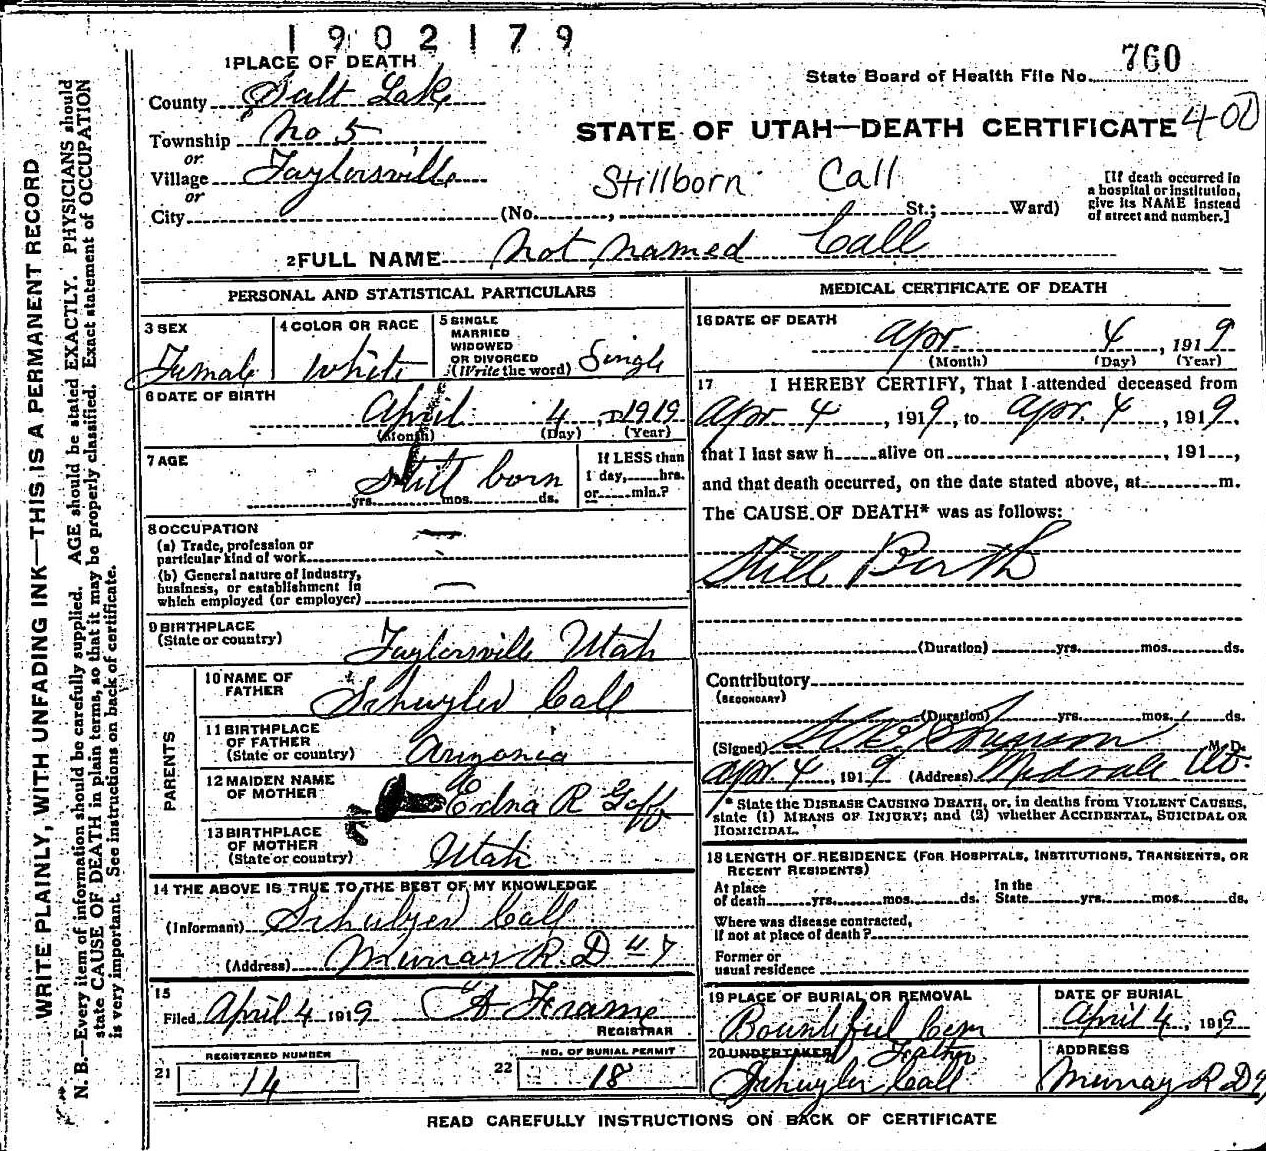 1902179
760
State Board of Health File No.
1 PLACE OF DEATH
County Salt Lake
Township No 5
or
Village Taylorsville
or
City (No. , St.; Ward)
STATE OF UTAH—DEATH CERTIFICATE 400
Stillborn Call
[If death occurred in
a hospital or institution,
give its NAME instead
of street and number.]
2 FULL NAME not named Call
PERSONAL AND STATISTICAL PARTICULARS
3 SEX
Female
4 COLOR OR RACE
White
5 SINGLE
MARRIED
WIDOWED
OR DIVORCED
(Write the word) Single
6 DATE OF BIRTH
April 4, 1919
(Month) (Day) (Year)
7 AGE
Still born
yrs. mos. ds.
If LESS than
1 day, hrs.
or min.?
8 OCCUPATION
(a) Trade, profession or
particular kind of work
(b) General nature of industry,
business, or establishment in
which employed (or employer)
9 BIRTHPLACE
(State or country) Taylorsville Utah
PARENTS
10 NAME OF
FATHER Schuyler Call
11 BIRTHPLACE
OF FATHER
(State or country)
12 MAIDEN NAME
OF MOTHER Edna R Goff
13 BIRTHPLACE
OF MOTHER
(State or country) Utah
14 THE ABOVE IS TRUE TO THE BEST OF MY KNOWLEDGE
(Informant) Schulyer Call
(Address) Murray R.D #7
15
Filed April 4 1919 A Frame
REGISTRAR
REGISTERED NUMBER
21 14
NO. OF BURIAL PERMIT
22 18
MEDICAL CERTIFICATE OF DEATH
16 DATE OF DEATH
Apr. 4, 1919
(Month) (Day) (Year)
17 I HEREBY CERTIFY, That I attended deceased from
Apr. 4, 1919, to Apr. 4, 1919.
that I last saw h alive on , 191 ,
and that death occurred, on the date stated above, at m.
The CAUSE OF DEATH* was as follows:
Still Birth
(Duration) yrs. mos. ds.
Contributory
(SECONDARY)
(Duration) yrs. mos. ds.
(Signed) M. D.
Apr 4, 1919 (Address) Midvale Ut.
* State the DISEASE CAUSING DEATH, or, in deaths from VIOLENT CAUSES,
state (1) MEANS OF INJURY; and (2) whether ACCIDENTAL, SUICIDAL OR
HOMICIDAL.
18 LENGTH OF RESIDENCE (FOR HOSPITALS, INSTITUTIONS, TRANSIENTS, OR
RECENT RESIDENTS)
At place
of death yrs. mos. ds.
In the
State yrs. mos. ds.
Where was disease contracted,
if not at place of death?
Former or
usual residence
19 PLACE OF BURIAL OR REMOVAL
Bountiful Cem
DATE OF BURIAL
April 4, 1919
20 UNDERTAKER Father
Schuyler Call
ADDRESS
Murray R D 7
READ CAREFULLY INSTRUCTIONS ON BACK OF CERTIFICATE
WRITE PLAINLY, WITH UNFADING INK—THIS IS A PERMANENT RECORD
N. B.—Every item of information should be carefully supplied. AGE should be stated EXACTLY. PHYSICIANS should
state CAUSE OF DEATH in plain terms, so that it may be properly classified. Exact statement of OCCUPATION
is very important. See instructions on back of certificate.